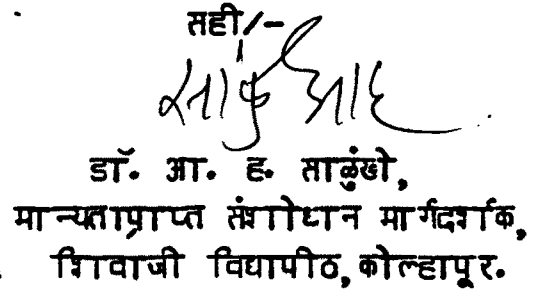 सही/-
डॉ. आ. ह. साळुंखे,
मान्यताप्राप्त संशोधान मार्गदर्शक,
शिवाजी विद्यापीठ, कोल्हापूर.